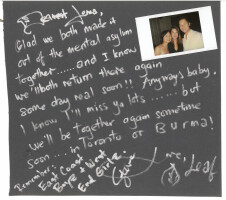 Dearest Jenn,
Glad we both made it
out of the mental asylum
together.....and I know
we'll both return there again
some day real soon!! Anyways baby,
I know I'll miss ya lots.....but
we'll be together again sometime
soon....in Toronto or Burma!
Remember:
East Coast
Boys & West
End Girls
me,
Leaf